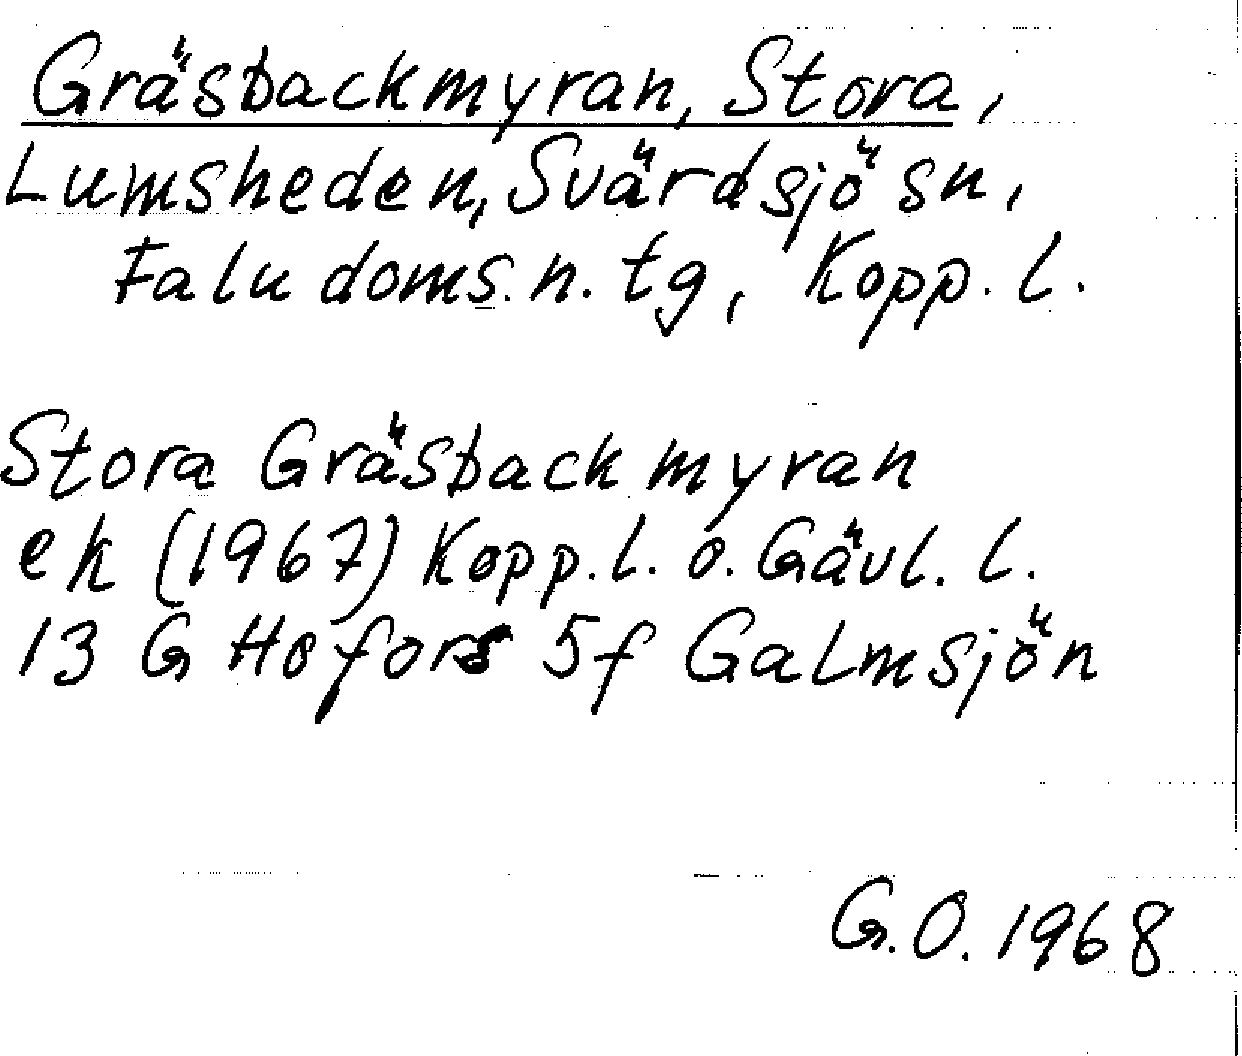 Gräsbackmyran, Stora,
Lumsheden, Svärdsjö sn,
Falu doms.n. tg, Kopp. l.
Stora Gräsbackmyran
ek (1967) Kopp. l. o. Gävl. l.
13 G Hofors 5f Galmsjön
G.O. 1968